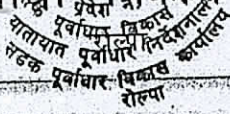 पूर्वाधार विकास
यातायात पूर्वाधार निर्देशनालय
सडक पूर्वाधार विकास कार्यालय
रोल्पा